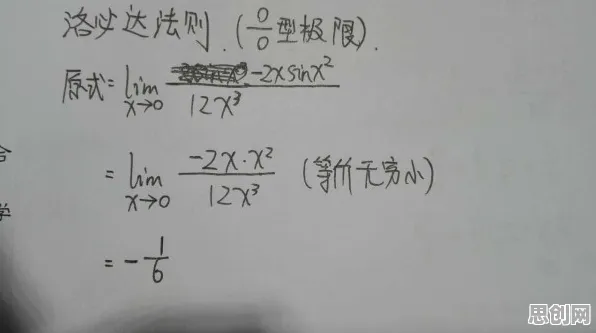 洛必达法则.(0/0型极限).
原式=lim x→0 -2xsinx²/12x³
=lim x→0 -2x·x²/12x³ (等价无穷小)
=-1/6
合
学
思创网